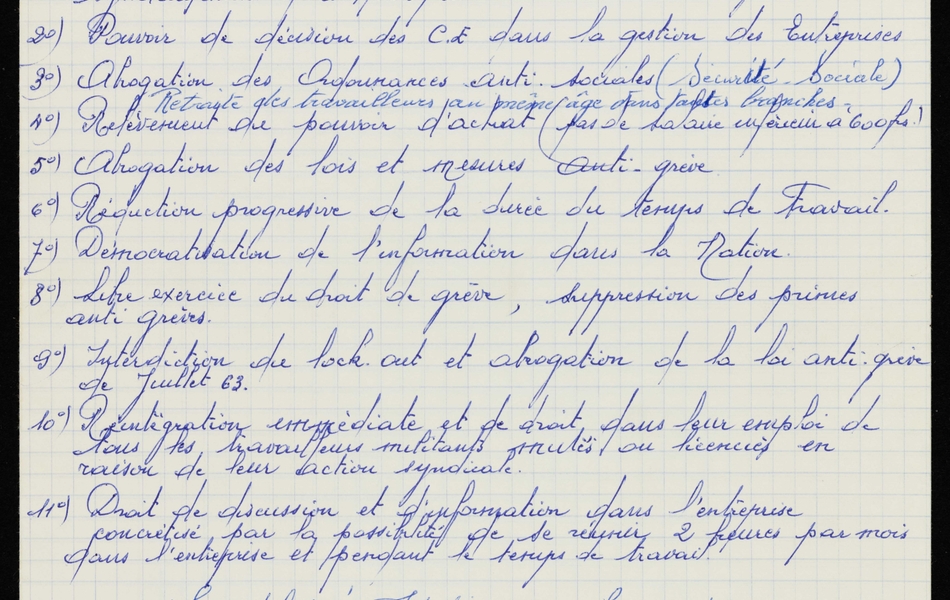 2°) Pouvoir de décision des C.E dans la gestion des Entreprises
3°) Abrogation des Ordonnances anti-sociales (Sécurité Sociale)
Retraite des travailleurs au même âge dans toutes branches.
4°) Relèvement du pouvoir d'achat (pas de salaire inférieur à 600frs.)
5°) Abrogation des lois et mesures anti-grève
6°) Réduction progressive de la durée du temps de Travail.
7°) Démocratisation de l'information dans la Nation.
8°) Libre exercice du droit de grève, suppression des primes
anti grèves.
9°) Interdiction du lock-out et abrogation de la loi anti-grève
de Juillet 63.
10°) Réintégration immédiate et de droit dans leur emploi de
tous les travailleurs militants mutés ou licenciés en
raison de leur action syndicale.
11°) Droit de discussion et d'information dans l'entreprise
concrétisé par la possibilité de se réunir 2 heures par mois
dans l'entreprise et pendant le temps de travail.